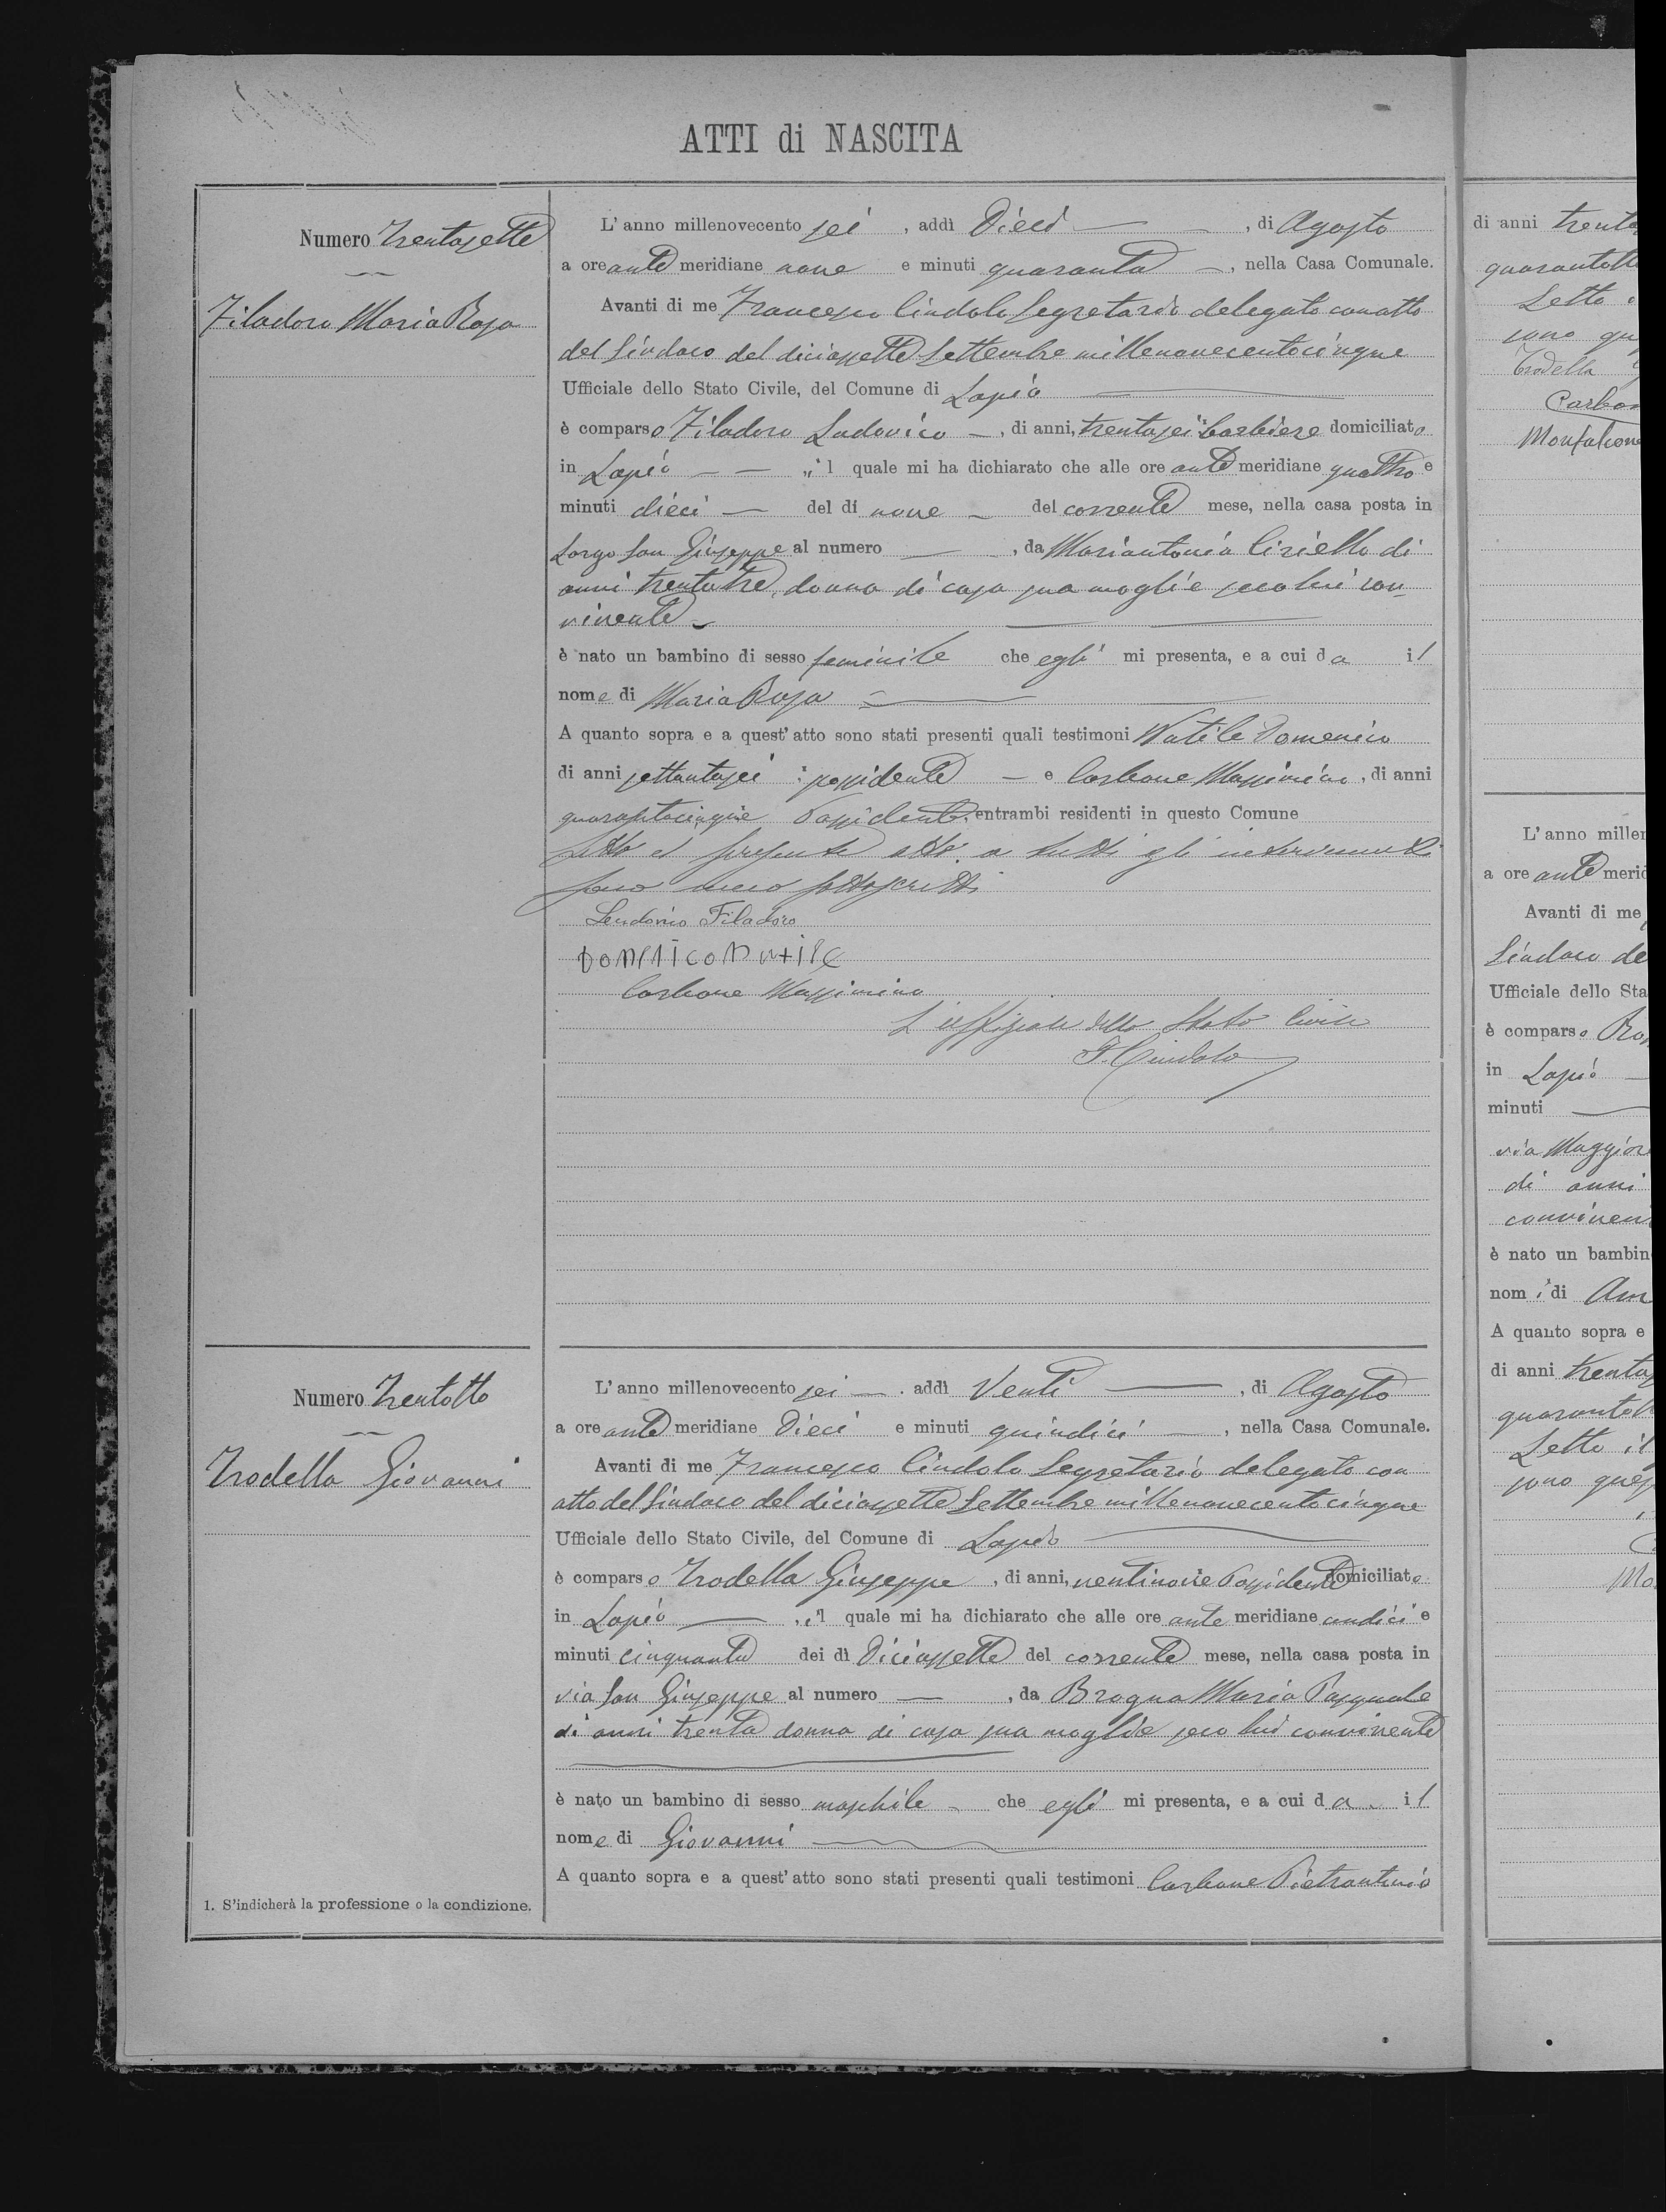 ATTI di NASCITA
Numero Trentasette
Filadoro Maria Rosa
L'anno millenovecento sei, addì Dieci, di Agosto
a ore ante meridiane nove e minuti quaranta, nella Casa Comunale.
Avanti di me Francesco Cindolo Segretario delegato con atto
del Sindaco del diciassette Settembre millenovecentocinque
Ufficiale dello Stato Civile, del Comune di Lapio
è comparso Filadoro Ludovico, di anni, trentasei barbiere domiciliato
in Lapio, il quale mi ha dichiarato che alle ore ante meridiane quattro e
minuti dieci del dì nove del corrente mese, nella casa posta in
Largo San Giuseppe al numero —, da Mariantonia Ciriello di
anni trentatre, donna di casa sua moglie seco lui con-
vivente
è nato un bambino di sesso feminile che egli mi presenta, e a cui da il
nome di Maria Rosa
A quanto sopra e a quest'atto sono stati presenti quali testimoni Natile Domenico
di anni settantasei possidente e Carbone Massimino, di anni
quarantacinque Possidente, entrambi residenti in questo Comune
Letto il presente atto a tutti gli intervenuti
sono meco sottoscritti
Ludovico Filadoro
Domenico Natile
Carbone Massimino
L'uffiziale dello Stato Civile
F. Cindolo
Numero Trentotto
Trodella Giovanni
L'anno millenovecento sei, addì Venti, di Agosto
a ore ante meridiane Dieci e minuti quindici, nella Casa Comunale.
Avanti di me Francesco Cindolo Segretario delegato con
atto del Sindaco del diciassette Settembre millenovecentocinque
Ufficiale dello Stato Civile, del Comune di Lapio
è comparso Trodella Giuseppe, di anni, ventinove Possidente domiciliato
in Lapio, il quale mi ha dichiarato che alle ore ante meridiane undici e
minuti cinquanta dei dì Diciassette del corrente mese, nella casa posta in
via San Giuseppe al numero —, da Brogna Maria Pasquale
di anni trenta donna di casa sua moglie seco lui convivente
è nato un bambino di sesso maschile che egli mi presenta, e a cui da il
nome di Giovanni
A quanto sopra e a quest'atto sono stati presenti quali testimoni Carbone Pietrantonio
1. S'indicherà la professione o la condizione.
di anni
Letto
Trodella
Carbon
Monfalcone
L'anno miller
a ore ante merid
Avanti di me
Sindaco de
Ufficiale dello Sta
è comparso
in Lapio
minuti
via Maggior
di anni
conviven
è nato un bambin
nomi di Am
A quanto sopra e
di anni trenta
Letto il
sono ques